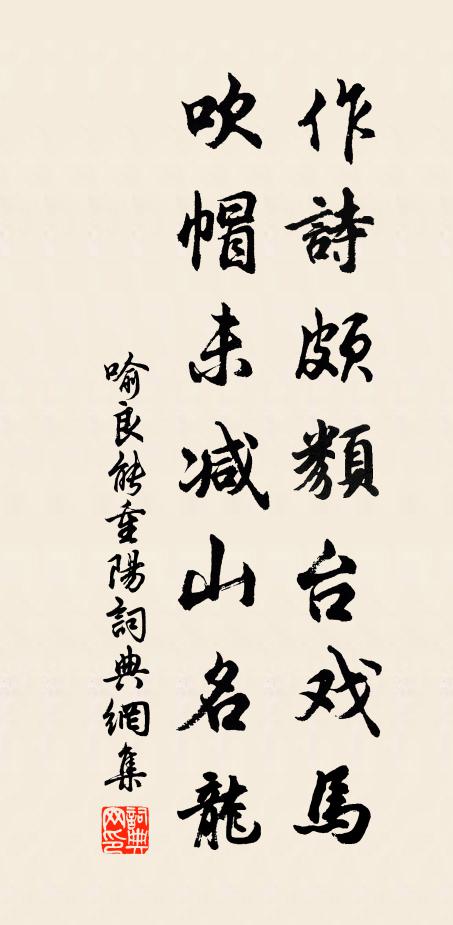 作詩頗類台戏馬
吹帽未减山名龍
喻良能重陽詞典網集
詞典网印